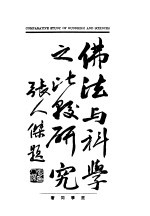 COMPARATIVE STUDY OF BUDDHISM AND SCIENCES
佛法与科學
之比較研究
張人傑題